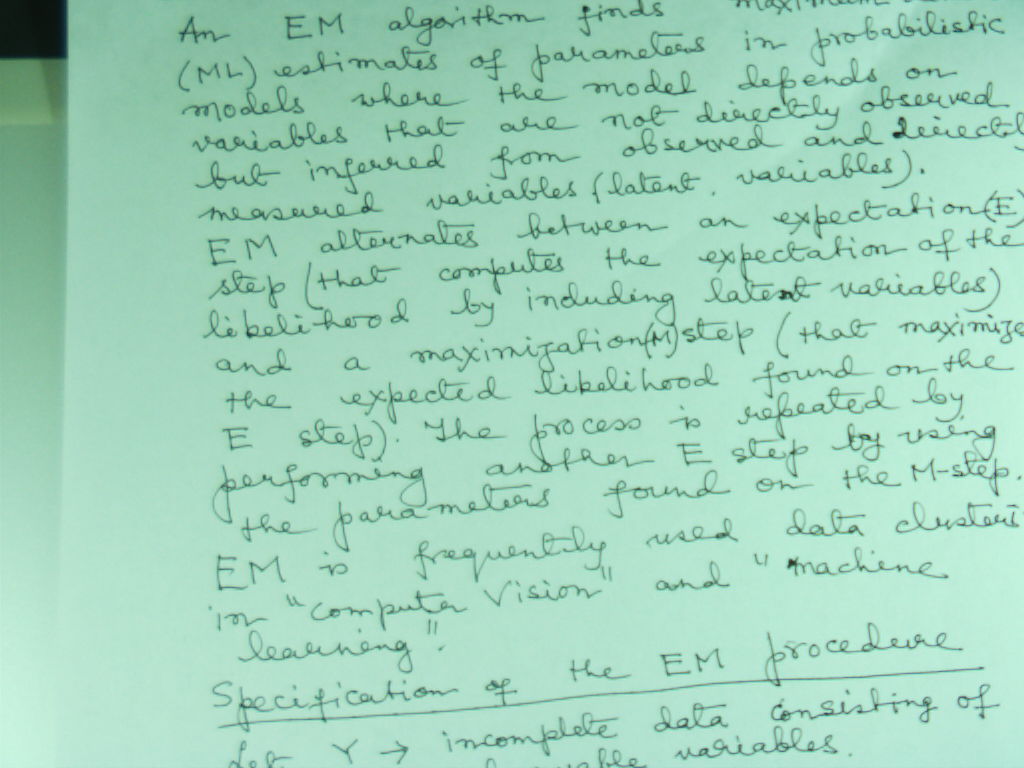 An EM algorithm finds maximum
(ML) estimates of parameters in probabilistic
models where the model depends on
variables that are not directly observed
but inferred from observed and directly
measured variables (latent variables).
EM alternates between an expectation(E)
step (that computes the expectation of the
likelihood by including latent variables)
and a maximization(M) step (that maximize
the expected likelihood found on the
E step). The process is repeated by
performing another E step by using
the parameters found on the M-step.
EM is frequently used data clusteri
in "computer Vision" and "machine
learning".
Specification of the EM procedure
Let Y → incomplete data consisting of
variables.